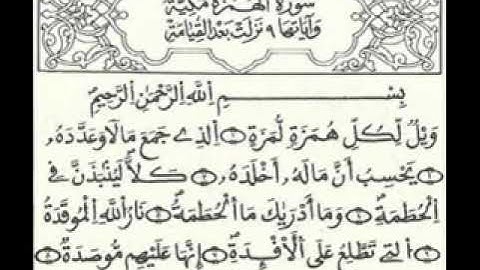 سُورَةُ الْهُمَزَةِ مَكِّيَّة
وَآيَاتُهَا ٩ نَزَلَتْ بَعْدَ الْقِيَامَةِ
بِسْمِ اِللَّهِ اِلرَّحْمَٰنِ اِلرَّحِيمِ
وَيْلٌ لِّكُلِّ هُمَزَةٍ لُّمَزَةٍ ١ اِلذِے جَمَعَ مَالاً وَعَدَّدَهُۥ
٢ يَحْسِبُ أَنَّ مَالَهُۥ أَخْلَدَهُۥ ٣ كَلَّا لَيُنۢبَذَنَّ فِے
اِلْحُطَمَةِ ٤ وَمَا أَدْرَيٰكَ مَا اَلْحُطَمَةُ ٥ نَارُ اُللَّهِ اِلْمُوقَدَةُ
٦ اُلتِے تَطَّلِعُ عَلَى اَلْأَفْـِٕدَةِ ٧ إِنَّهَا عَلَيْهِم مُّوصَدَةٌ ٨